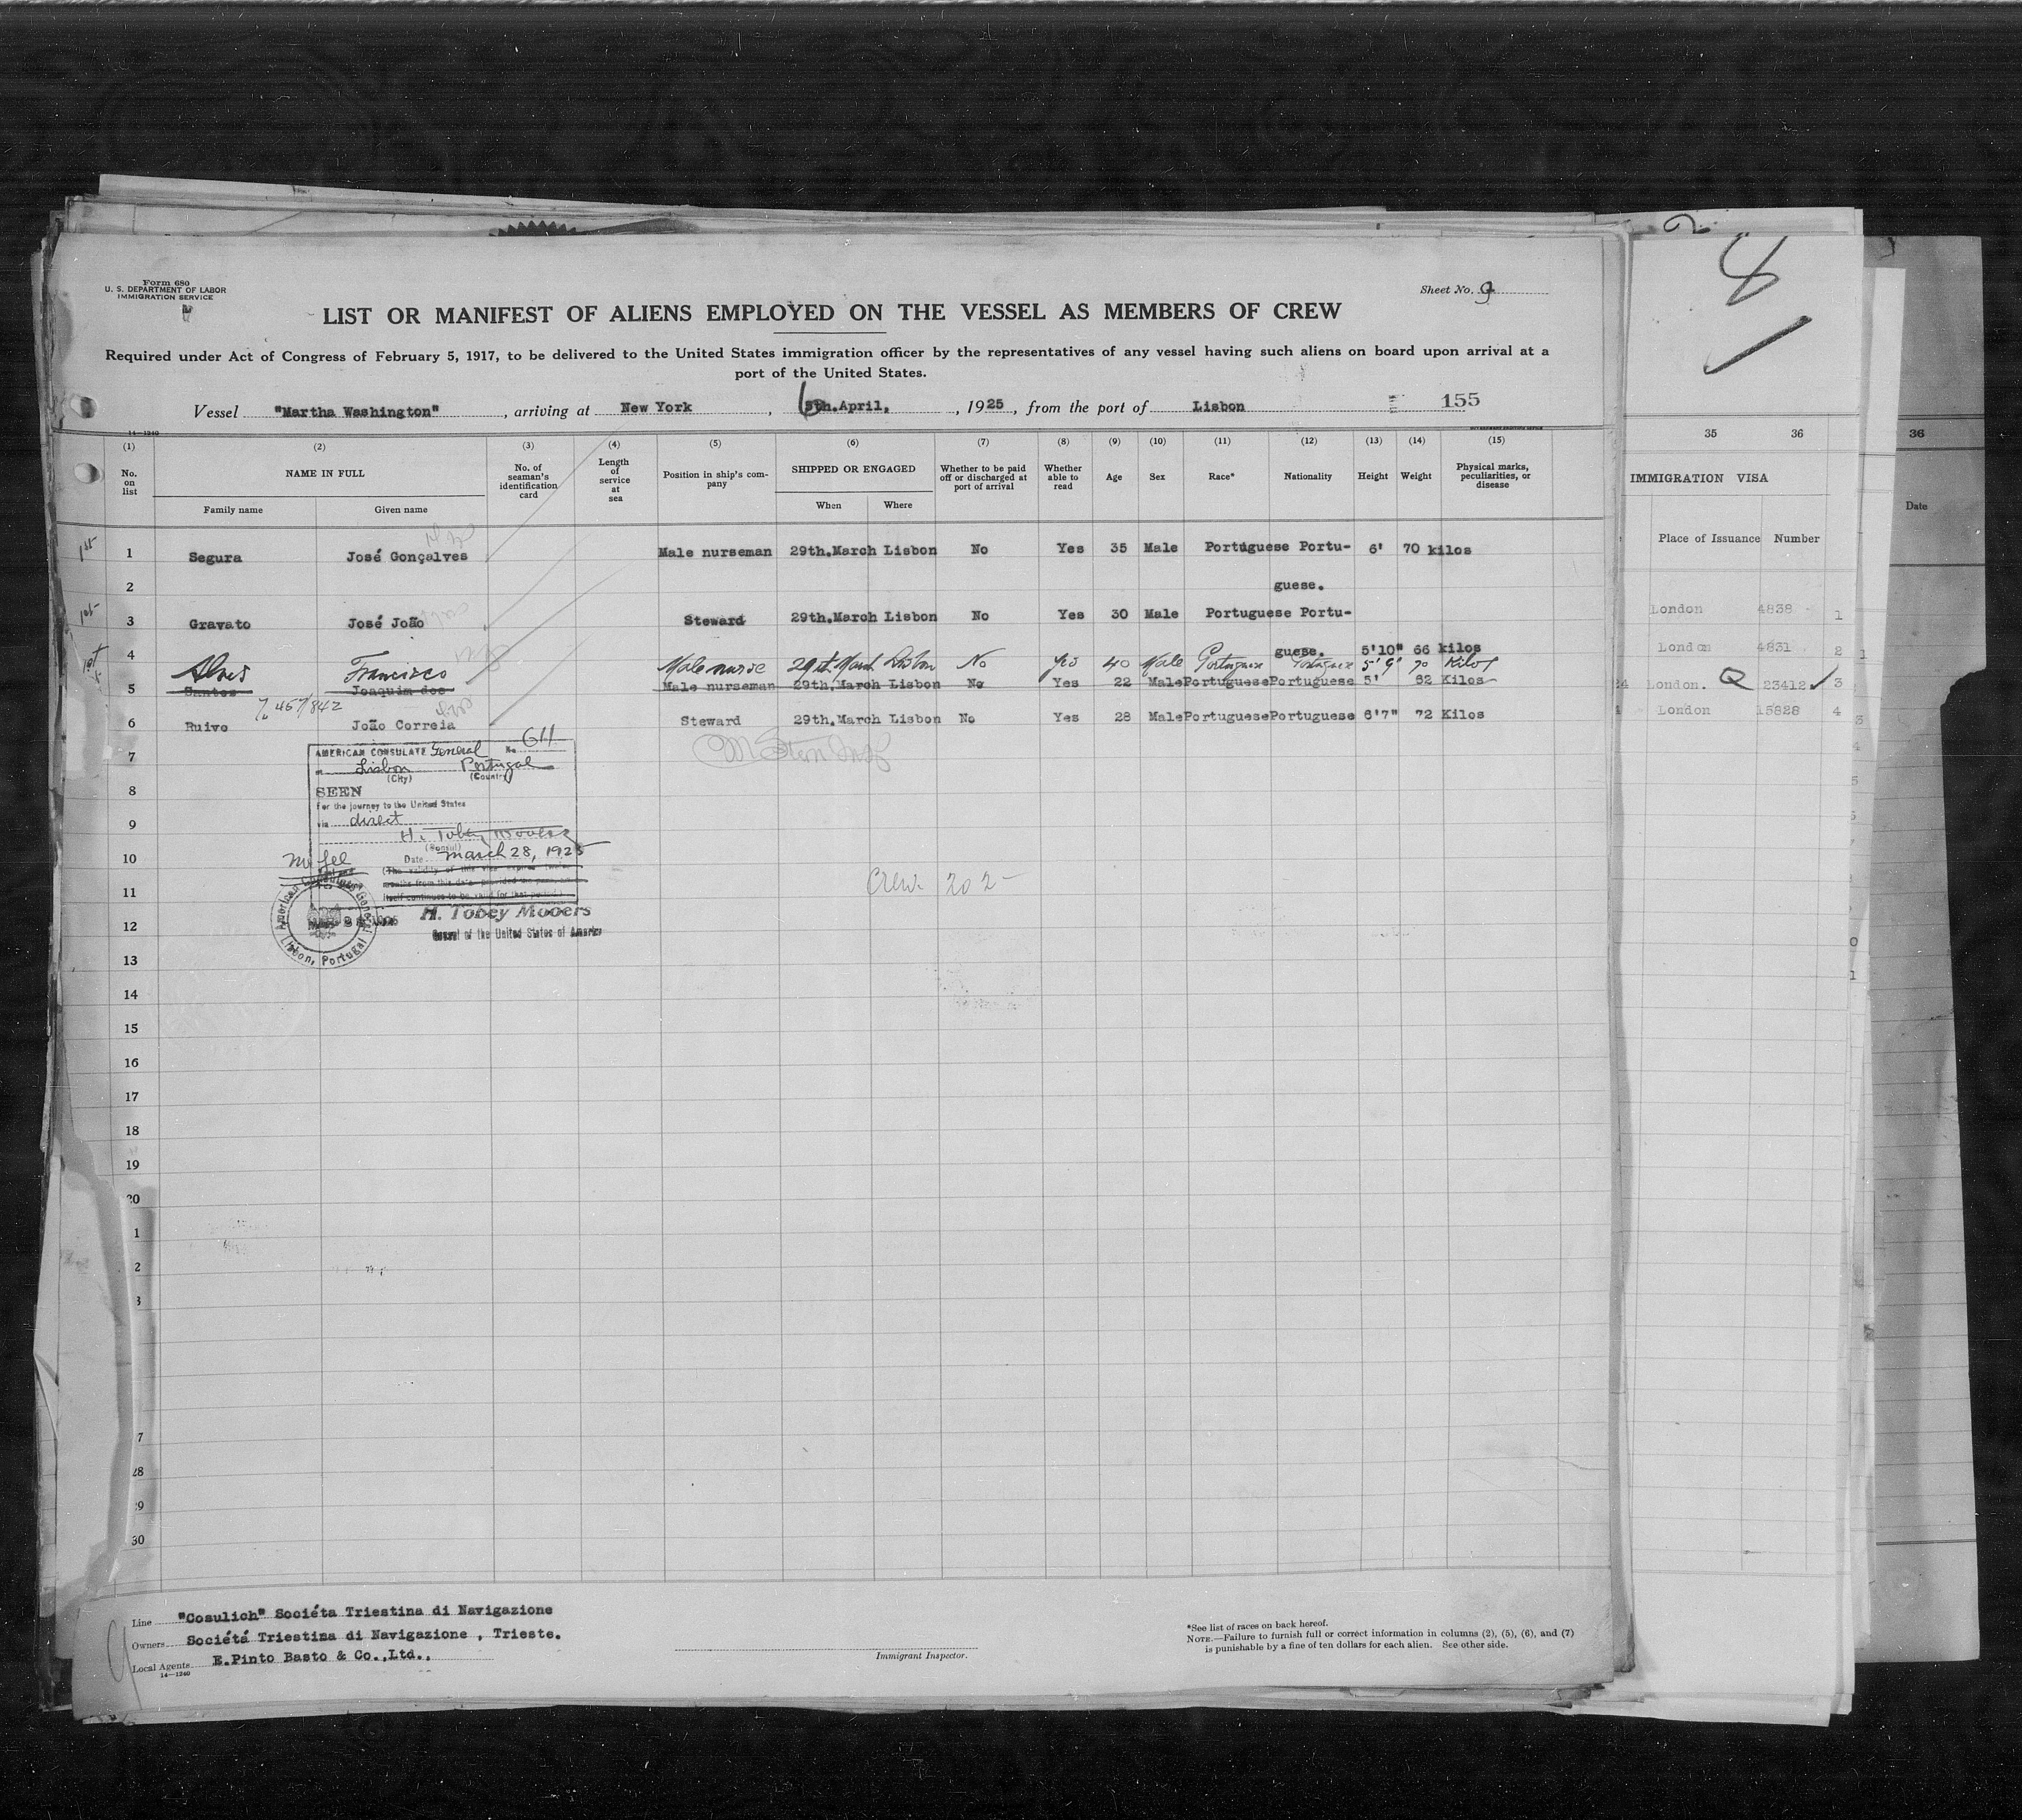 Form 680
U. S. DEPARTMENT OF LABOR
IMMIGRATION SERVICE
Sheet No. 9
8
LIST OR MANIFEST OF ALIENS EMPLOYED ON THE VESSEL AS MEMBERS OF CREW
Required under Act of Congress of February 5, 1917, to be delivered to the United States immigration officer by the representatives of any vessel having such aliens on board upon arrival at a
port of the United States.
Vessel "Martha Washington", arriving at New York, 6th.April, 1925, from the port of Lisbon 155
14—1240
(1) (2) (3) (4) (5) (6) (7) (8) (9) (10) (11) (12) (13) (14) (15)
No. on list
NAME IN FULL
Family name Given name
No. of seaman's identification card
Length of service at sea
Position in ship's company
SHIPPED OR ENGAGED
When Where
Whether to be paid off or discharged at port of arrival
Whether able to read
Age Sex Race* Nationality Height Weight
Physical marks, peculiarities, or disease
1st 1 Segura José Gonçalves Male nurseman 29th.March Lisbon No Yes 35 Male Portuguese Portu- 6' 70 kilos
2 guese.
1st 3 Gravato José João Steward 29th.March Lisbon No Yes 30 Male Portuguese Portu-
4 guese. 5'10" 66 kilos
1st Alves Francisco Male nurse 29th March Lisbon No Yes 40 Male Portuguese Portuguese 5' 9" 70 Kilos
5 Santos Joaquim dos Male nurseman 29th.March Lisbon No Yes 22 Male Portuguese Portuguese 5' 62 Kilos
6 Ruivo João Correia Steward 29th.March Lisbon No Yes 28 Male Portuguese Portuguese 6'7" 72 Kilos
7
8
9
10
11
12
13
14
15
16
17
18
19
20
1
2
3
7
28
29
30
AMERICAN CONSULATE General No. 611
at Lisbon Portugal
(City) (Country)
SEEN
for the journey to the United States
via direct
H. Tobey Mooers
(Consul)
Date March 28, 1925
(The validity of this visa expires twelve
months from this date provided the pass
itself continues to be valid for that period.)
No fee
American Consulate General
Lisbon, Portugal
H. Tobey Mooers
Consul of the United States of America
Crew 202
Line "Cosulich"Ociéta Triestina di Navigazione
Owners Société Triestina di Navigazione, Trieste.
Local Agents E.Pinto Basto & Co.,Ltd.,
14—1240
Immigrant Inspector.
*See list of races on back hereof.
NOTE.—Failure to furnish full or correct information in columns (2), (5), (6), and (7)
is punishable by a fine of ten dollars for each alien. See other side.
35 36
IMMIGRATION VISA
Place of Issuance Number
London 4838 1
London 4831 2
London. 23412 3
London 15828 4
36
Date